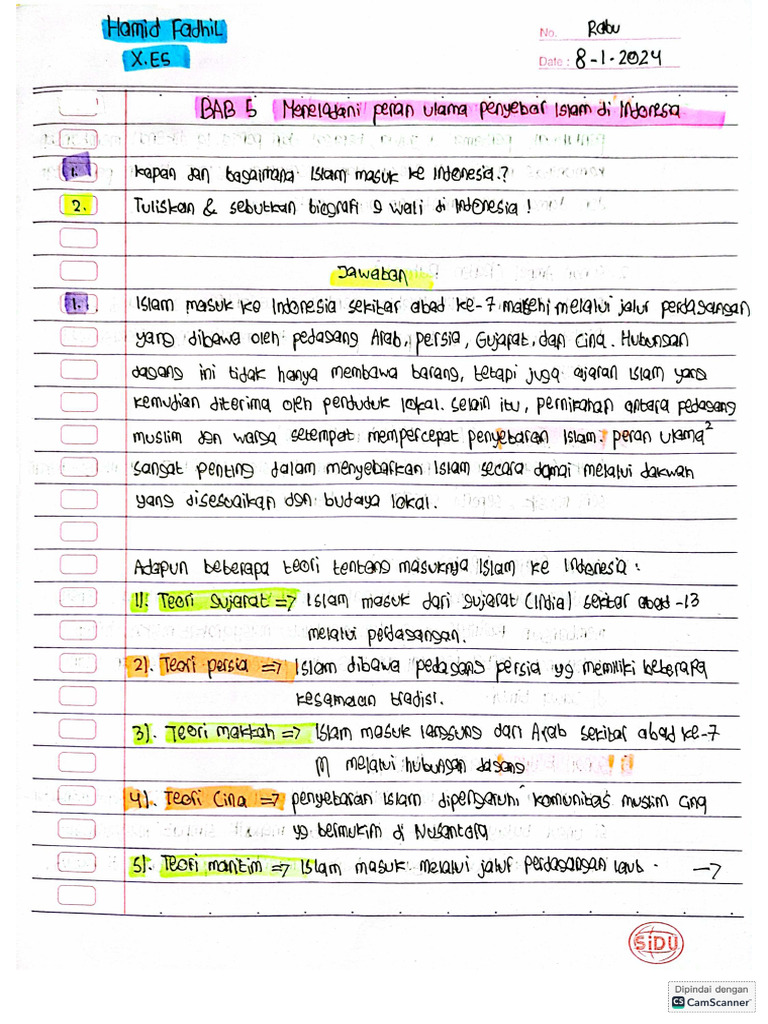 Hamid Fadhil
X.E5
No. Rabu
Date : 8-1-2024
BAB 5 Meneladani peran ulama penyebar Islam di Indonesia
1. Kapan dan bagaimana Islam masuk ke Indonesia.?
2. Tuliskan & sebutkan biografi 9 wali di Indonesia !
Jawaban
1. Islam masuk ke Indonesia sekitar abad ke-7 masehi melalui jalur perdagangan
yang dibawa oleh pedagang Arab, persia, Gujarat, dan Cina. Hubungan
dagang ini tidak hanya membawa barang, tetapi juga ajaran Islam yang
kemudian diterima oleh penduduk lokal. selain itu, pernikahan antara pedagang
muslim dan warga setempat mempercepat penyebaran Islam. peran ulama²
sangat penting dalam menyebarkan Islam secara damai melalui dakwah
yang disesuaikan dgn budaya lokal.
Adapun beberapa teori tentang masuknya Islam ke Indonesia :
1). Teori Gujarat => Islam masuk dari Gujarat (India) sekitar abad -13
melalui perdagangan.
2). Teori persia => Islam dibawa pedagang persia yg memiliki beberapa
kesamaan tradisi.
3). Teori makkah => Islam masuk langsung dari Arab sekitar abad ke-7
M melalui hubungan dagang
4). Teori Cina => penyebaran Islam dipengaruhi komunitas muslim Cina
yg bermukim di Nusantara
5). Teori maritim => Islam masuk melalui jalur perdagangan laut. →
SiDU
Dipindai dengan
CS CamScanner